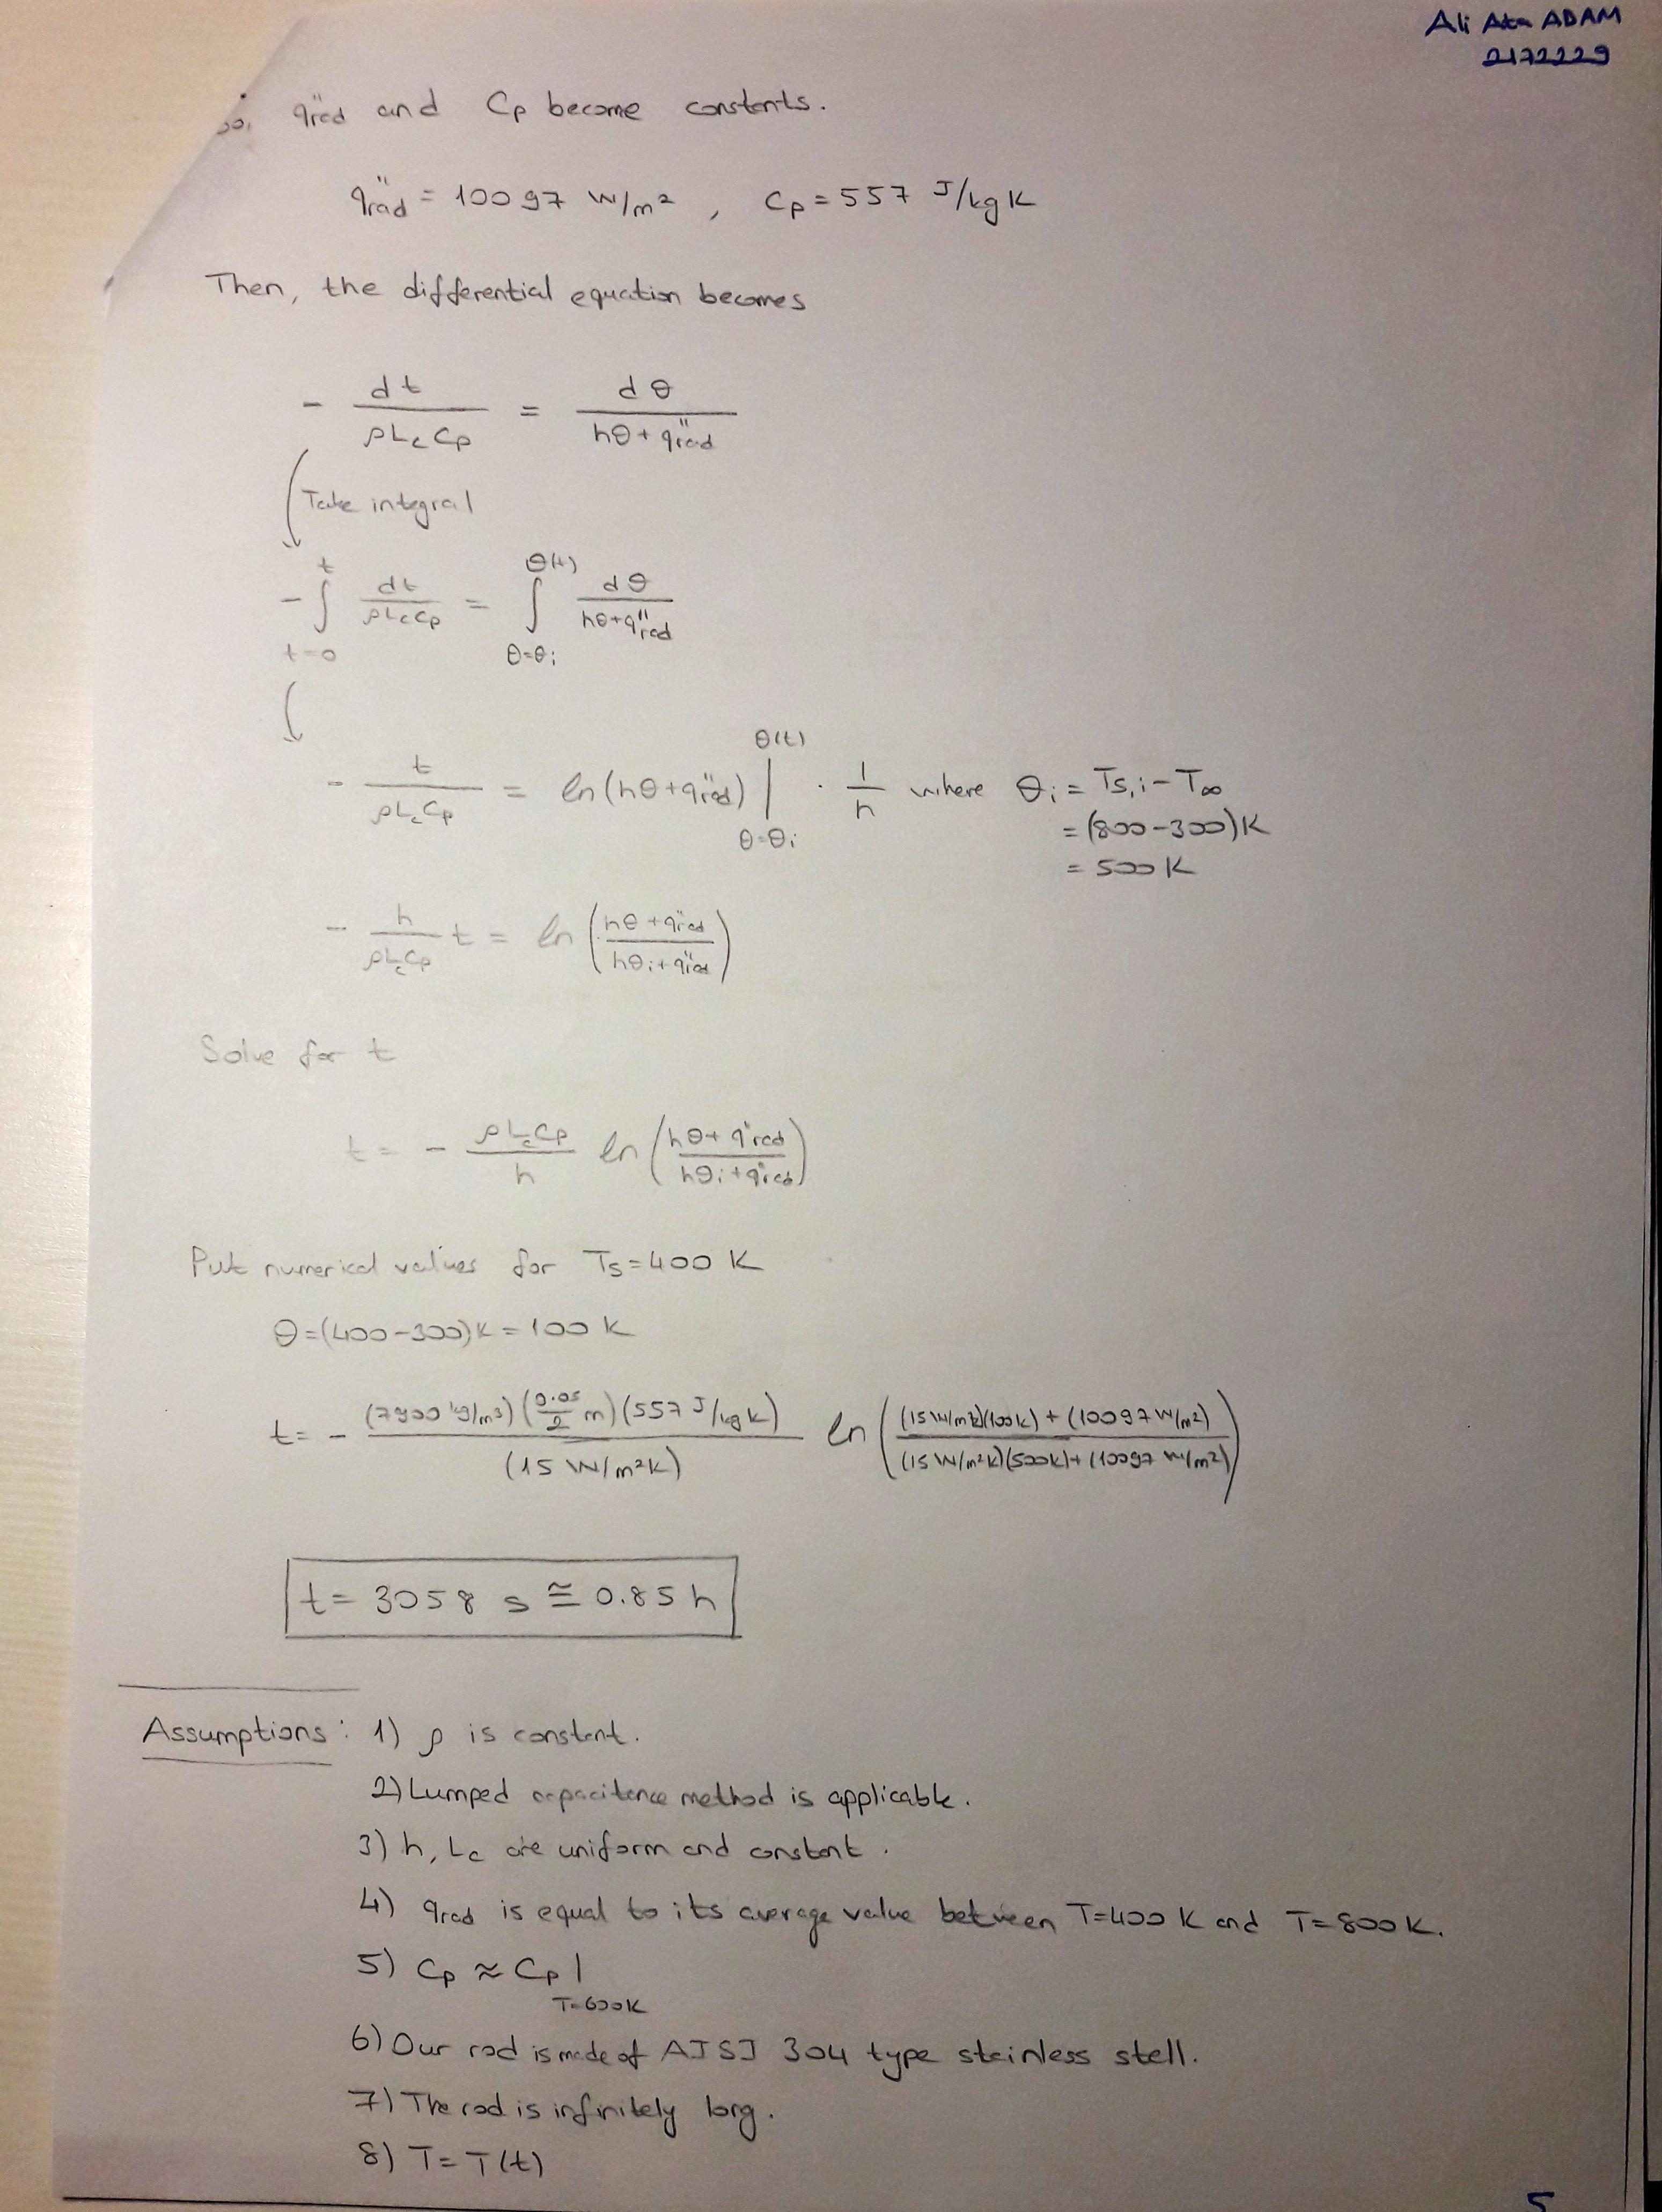 Ali Ata ADAM
2172229
So, q̈rad and Cp become constants.
q̈rad = 10097 W/m² , Cp = 557 J/kgK
Then, the differential equation becomes
- dt/ρLcCp = dθ/(hθ + q̈rad)
Take integral
- ∫_{t=0}^{t} dt/ρLcCp = ∫_{θ=θi}^{θ(t)} dθ/(hθ+q"rad)
- t/ρLcCp = ln(hθ+q̈rad) |_{θ=θi}^{θ(t)} · 1/h where θi = Ts,i - T∞
= (800-300)K
= 500K
- h/ρLcCp t = ln((hθ+q̈rad)/(hθi+q̈rad))
Solve for t
t = - ρLcCp/h ln((hθ+q̈rad)/(hθi+q̈rad))
Put numerical values for Ts=400 K
θ=(400-300)K = 100 K
t = - (7900 kg/m³)(0.05/2 m)(557 J/kgK)/(15 W/m²K) ln(((15 W/m²K)(100K)+(10097 W/m²))/((15 W/m²K)(500K)+(10097 W/m²)))
t = 3058 s ≅ 0.85 h
Assumptions: 1) ρ is constant.
2) Lumped capacitance method is applicable.
3) h, Lc are uniform and constant.
4) qrad is equal to its average value between T=400 K and T=800K.
5) Cp ≈ Cp|T=600K
6) Our rod is made of AISI 304 type stainless stell.
7) The rod is infinitely long.
8) T = T(t)
5